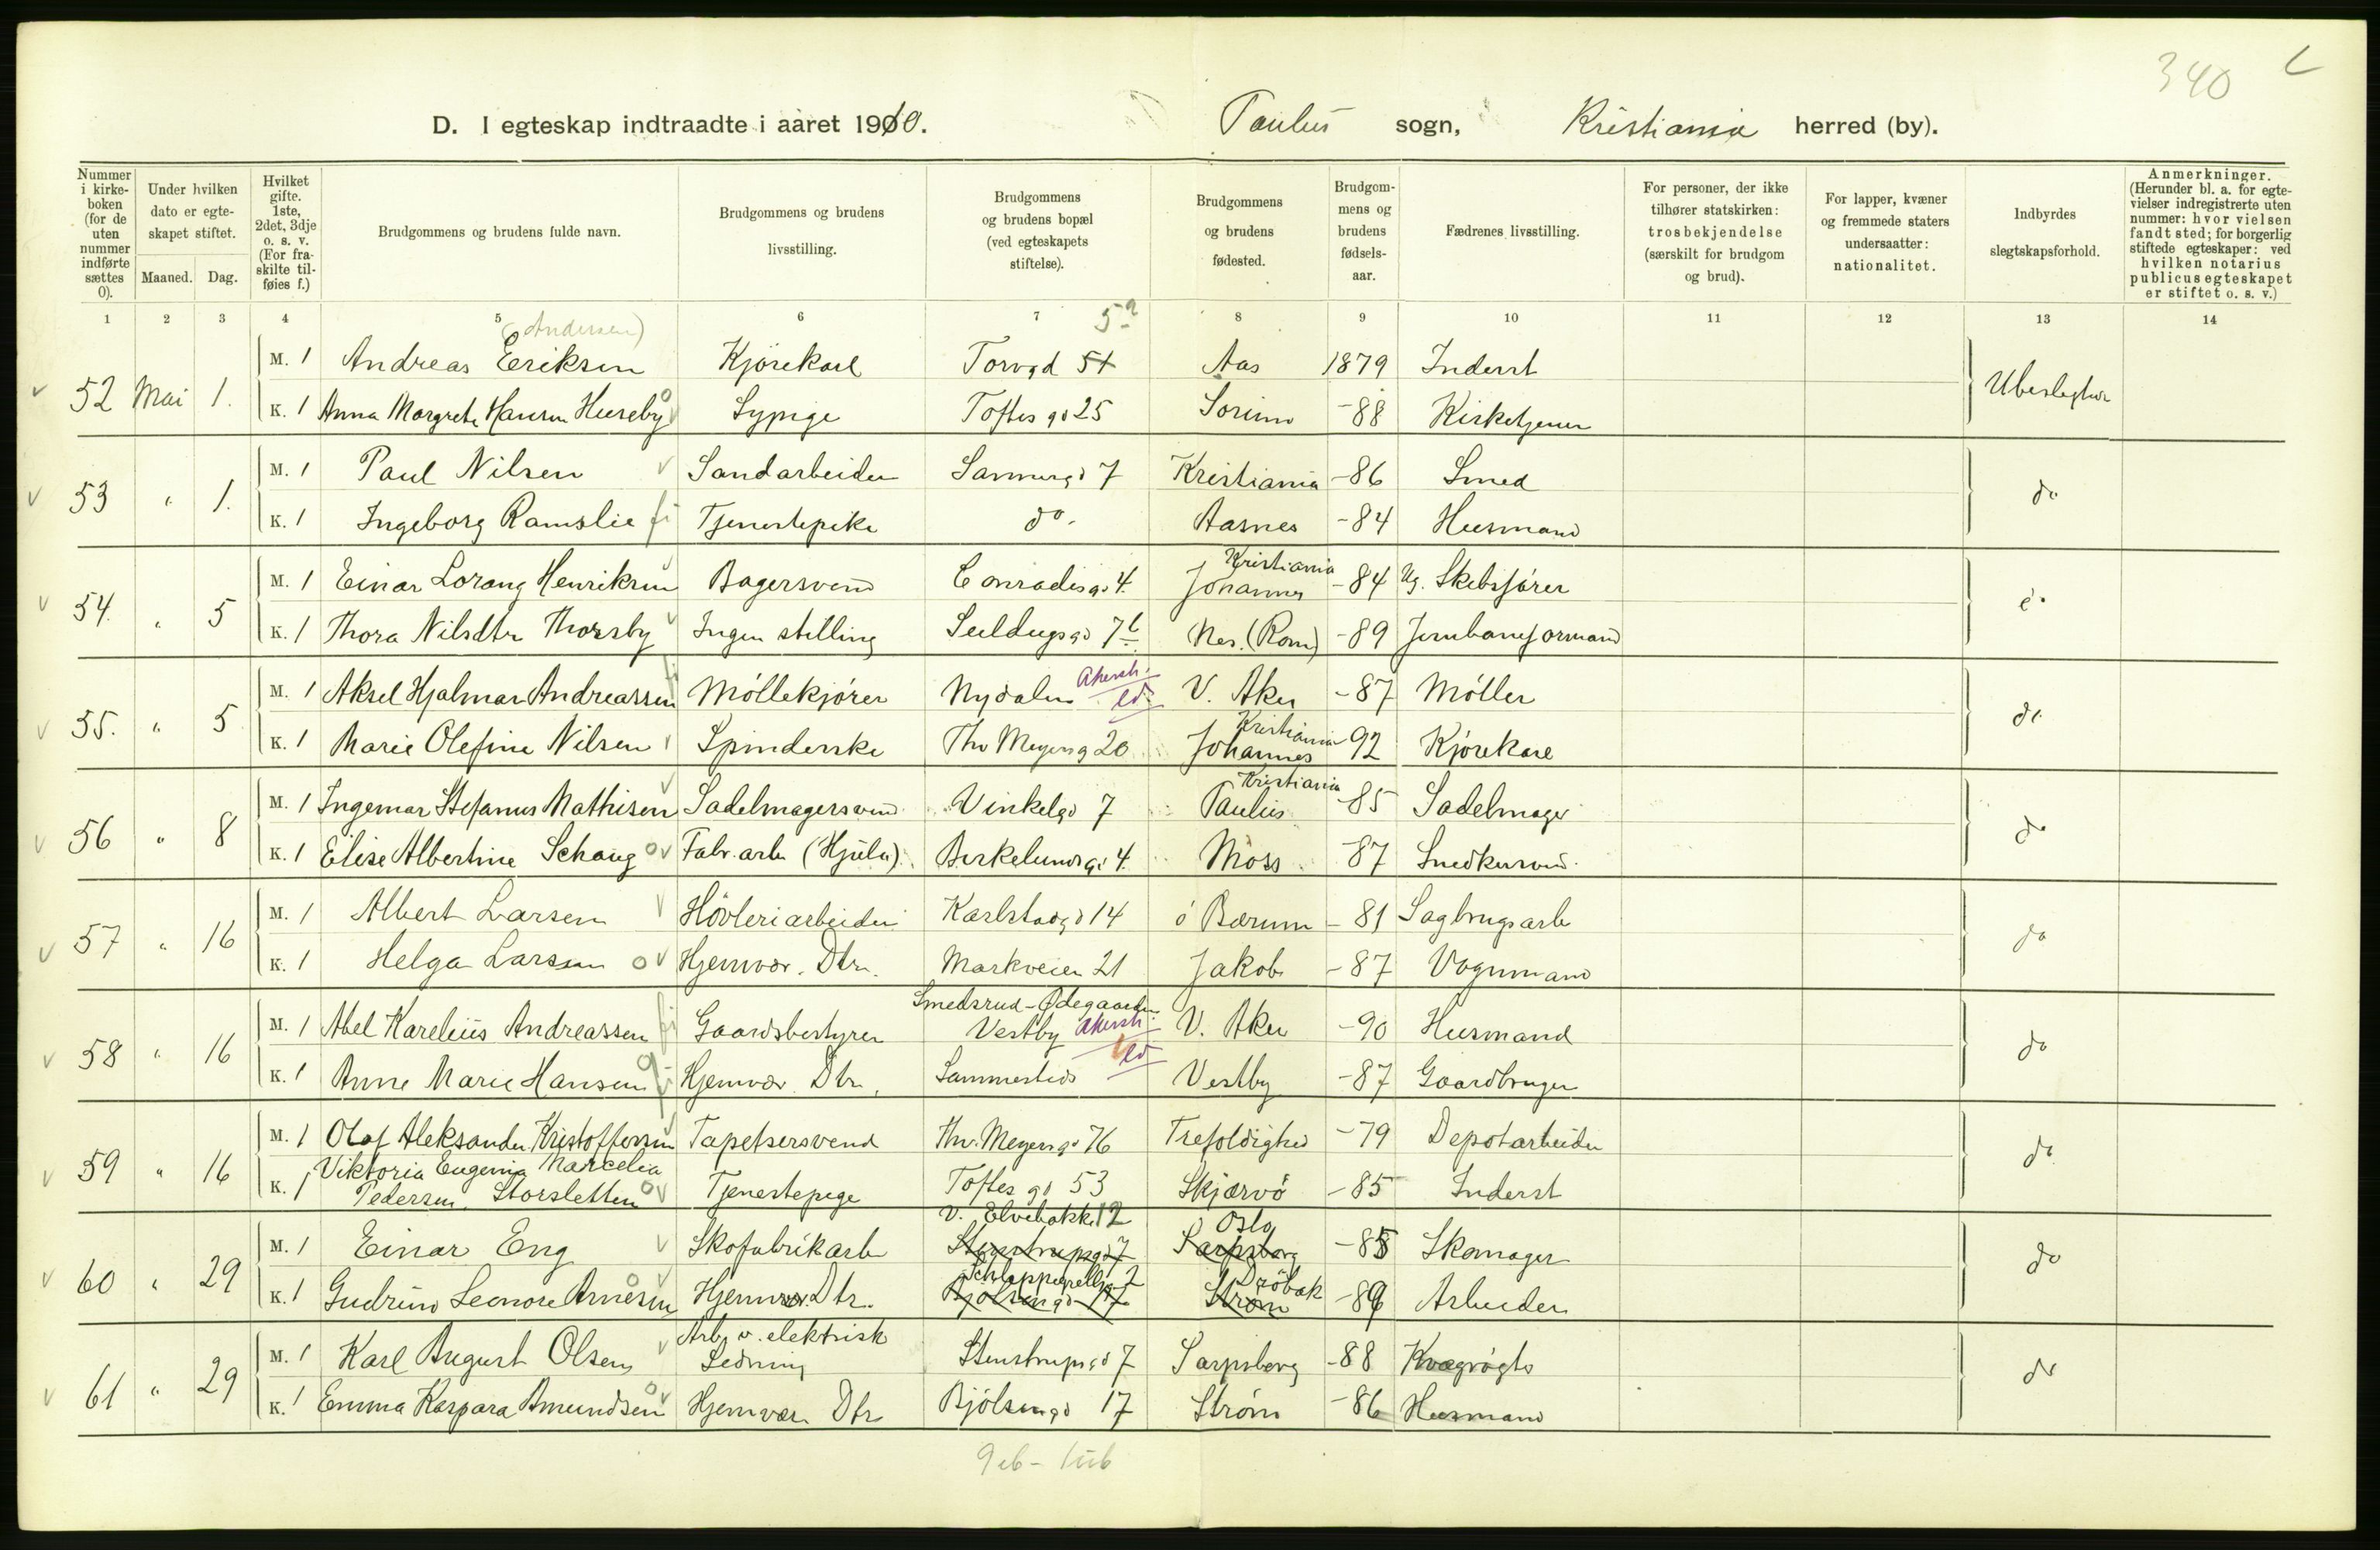 340
D. I egteskap indtraadte i aaret 1910. Paulus sogn, Kristiania herred (by).
Nummer i kirke-boken (for de uten nummer indførte sættes 0).
Under hvilken dato er egte-skapet stiftet.
Maaned. Dag.
Hvilket gifte. 1ste, 2det, 3dje o. s. v. (For fra-skilte til-føies f.)
Brudgommens og brudens fulde navn.
Brudgommens og brudens livsstilling.
Brudgommens og brudens bopæl (ved egteskapets stiftelse).
Brudgommens og brudens fødested.
Brudgom-mens og brudens fødsels-aar.
Fædrenes livsstilling.
For personer, der ikke tilhører statskirken: trosbekjendelse (særskilt for brudgom og brud).
For lapper, kvæner og fremmede staters undersaatter: nationalitet.
Indbyrdes slegtskapsforhold.
Anmerkninger. (Herunder bl. a. for egte-vielser indregistrerte uten nummer: hvor vielsen fandt sted; for borgerlig stiftede egteskaper: ved hvilken notarius publicus egteskapet er stiftet o. s. v.)
1 2 3 4 5 6 7 8 9 10 11 12 13 14
(Andersen)
52 Mai 1. M. 1 Andreas Eriksen Kjørekarl Torvgd Aas 1879 Inderst Ubeslegtet
K. 1 Anna Margrete Hansen Huseby Sypige Toftes gd 25 Sørum -88 Kirketjener
53 " 1. M. 1 Paul Nilsen Sandarbeider Sannergd 7 Kristiania -86 Smed do
K. 1 Ingeborg Ramslie Tjenestepike do. Aasnes -84 Husmand
54. " 5 M. 1 Einar Lorang Henriksen Bagersvend Conradisgd 4. Kristiania Johannes -84 Ug. Skibsfører do
K. 1 Thora Nilsdtr Thorsby Ingen stilling Seildugsgd 7b Nes. (Rom) -89 Jernbaneformand
55. " 5 M. 1 Aksel Hjalmar Andreassen Møllekjører Nydalen Akersh. V. Aker -87 Møller do
K. 1 Marie Olefine Nilsen Spinderske Thv Meyersg 20 Kristiania Johannes 92 Kjørekarl
56 " 8 M. 1 Ingemar Stefanus Mathisen Sadelmagersvend Vinkelgd 7 Kristiania Paulus -85 Sadelmager do
K. 1 Elise Albertine Schaug Fabr.arb (Hjula). Birkelundsgd 4. Moss -87 Snedkersvend.
57 " 16 M. 1 Albert Larsen Høvleriarbeider Karlstadgd 14 ö Bærum -81 Sagbrugsarb do
K. 1 Helga Larsen Hjemvær. Dtr. Markveien 21 Jakob -87 Vognmand
58 " 16 M. 1 Abel Karelius Andreassen Gaardsbestyrer Smedsrud-Ødegaarden Vestby Akersh. V. Aker -90 Husmand do
K. 1 Anne Marie Hansen Hjemvær. Dtr. Sammesteds Vestby -87 Gaardbruger
59 " 16 M. 1 Olaf Aleksander Kristoffersen Tapetsersvend Thv. Meyersgd 76 Trefoldighed -79 Depotarbeider do
K. 1 Viktoria Eugenia Marcelia Pedersen Storsletten Tjenestepige Toftes gd 53 Skjærvö -85 Inderst
60 " 29 M. 1 Einar Eng Skofabrikarb V. Elvebakke 12 Stenstrupsgd 7 Oslo Sarpsborg -85 Skomager do
K. 1 Gudrun Leonore Arnesen Hjemvær. Dtr. Schleppegrellsg 2 Bjølsengd 17 Drøbak Strøm -89 Arbeider
61 " 29 M. 1 Karl August Olsen Arb. v. elektrisk Ledning Stenstrupsgd 7 Sarpsborg -88 Kvægrøgter do
K. 1 Emma Kaspara Amundsen Hjemvær Dtr Bjølsengd 17 Strøm -86 Husmand